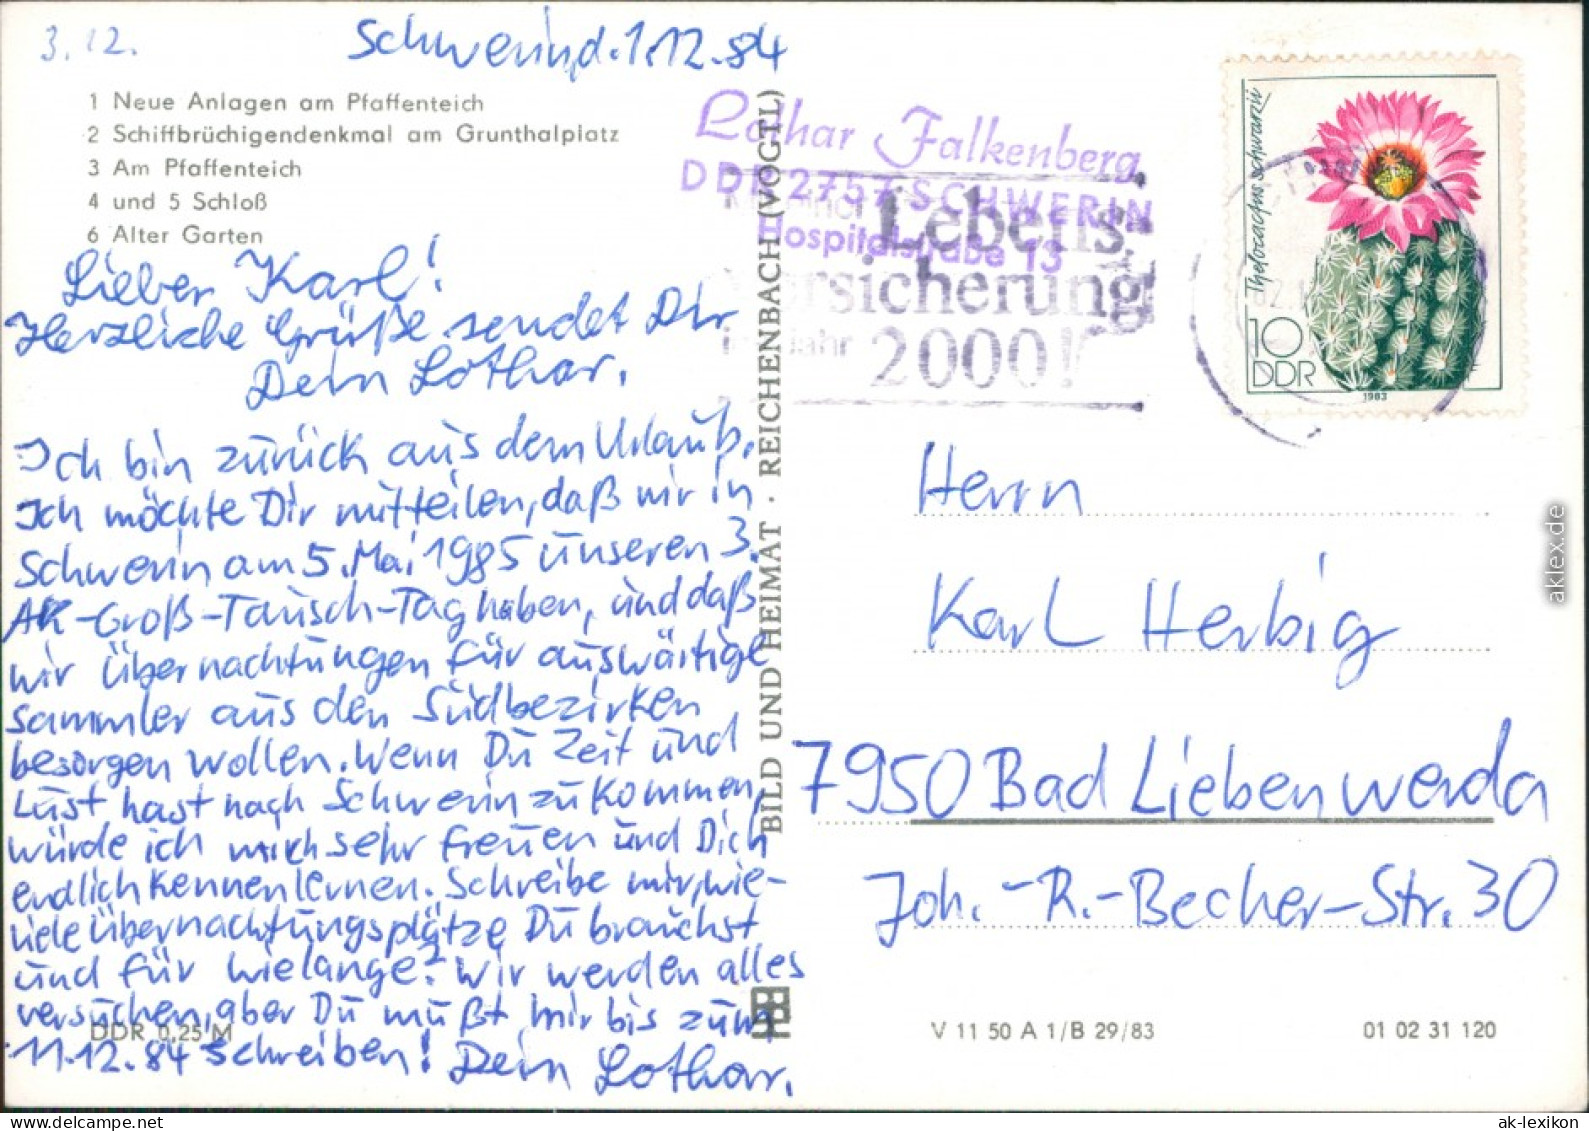 3.12.
Schwerin, d. 1.12.84
1 Neue Anlagen am Pfaffenteich
2 Schiffbrüchigendenkmal am Grunthalplatz
3 Am Pfaffenteich
4 und 5 Schloß
6 Alter Garten
Lieber Karl!
Herzliche Grüße sendet Dir
Dein Lothar.
Ich bin zurück aus dem Urlaub.
Ich möchte Dir mitteilen, daß wir in
Schwerin am 5. Mai 1985 unseren 3.
AK-Groß-Tausch-Tag haben, und daß
wir Übernachtungen für auswärtige
Sammler aus den Südbezirken
besorgen wollen. Wenn Du Zeit und
Lust hast nach Schwerin zu kommen,
würde ich mich sehr freuen und Dich
endlich kennenlernen. Schreibe mir, wie-
viele Übernachtungsplätze Du brauchst
und für wielange? Wir werden alles
versuchen, aber Du mußt mir bis zum
11.12.84 schreiben! Dein Lothar.
DDR 0,25 M
BILD UND HEIMAT · REICHENBACH (VOGTL)
Lothar Falkenberg
DDR 2757 SCHWERIN
Hospitalstraße 13
Lebens-
versicherung
im Jahr 2000!
Thelocactus schwarzii
10
DDR
1983
Herrn
Karl Herbig
7950 Bad Liebenwerda
Joh.-R.-Becher-Str. 30
V 11 50 A 1/B 29/83
01 02 31 120
aklex.de
ak-lexikon